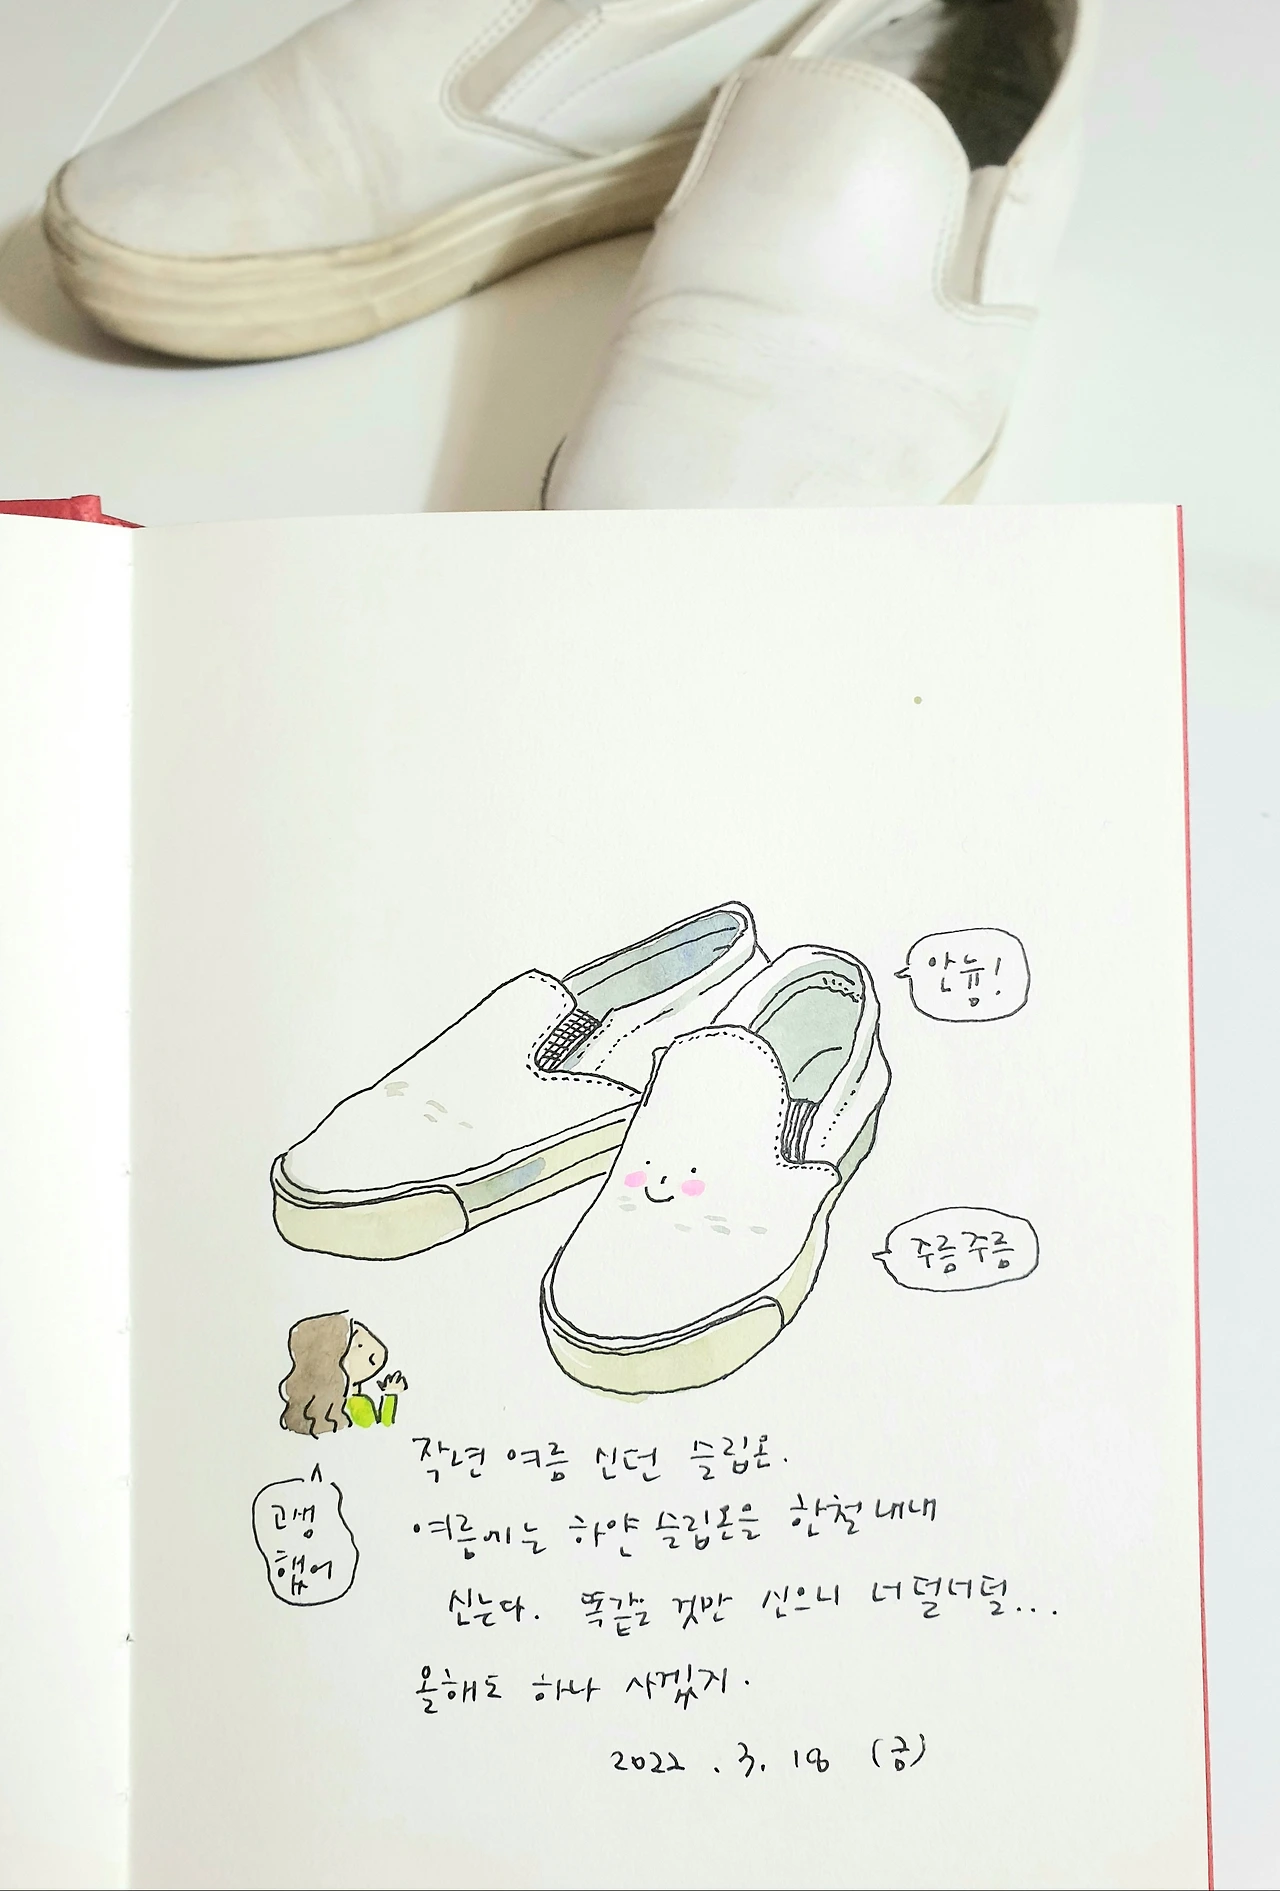 안늉!
주름주름
고생
했어
작년 여름 신던 슬립온.
여름에는 하얀 슬립온을 한철 내내
신는다. 똑같은 것만 신으니 너덜너덜...
올해도 하나 사겠지.
2022. 3. 18 (금)